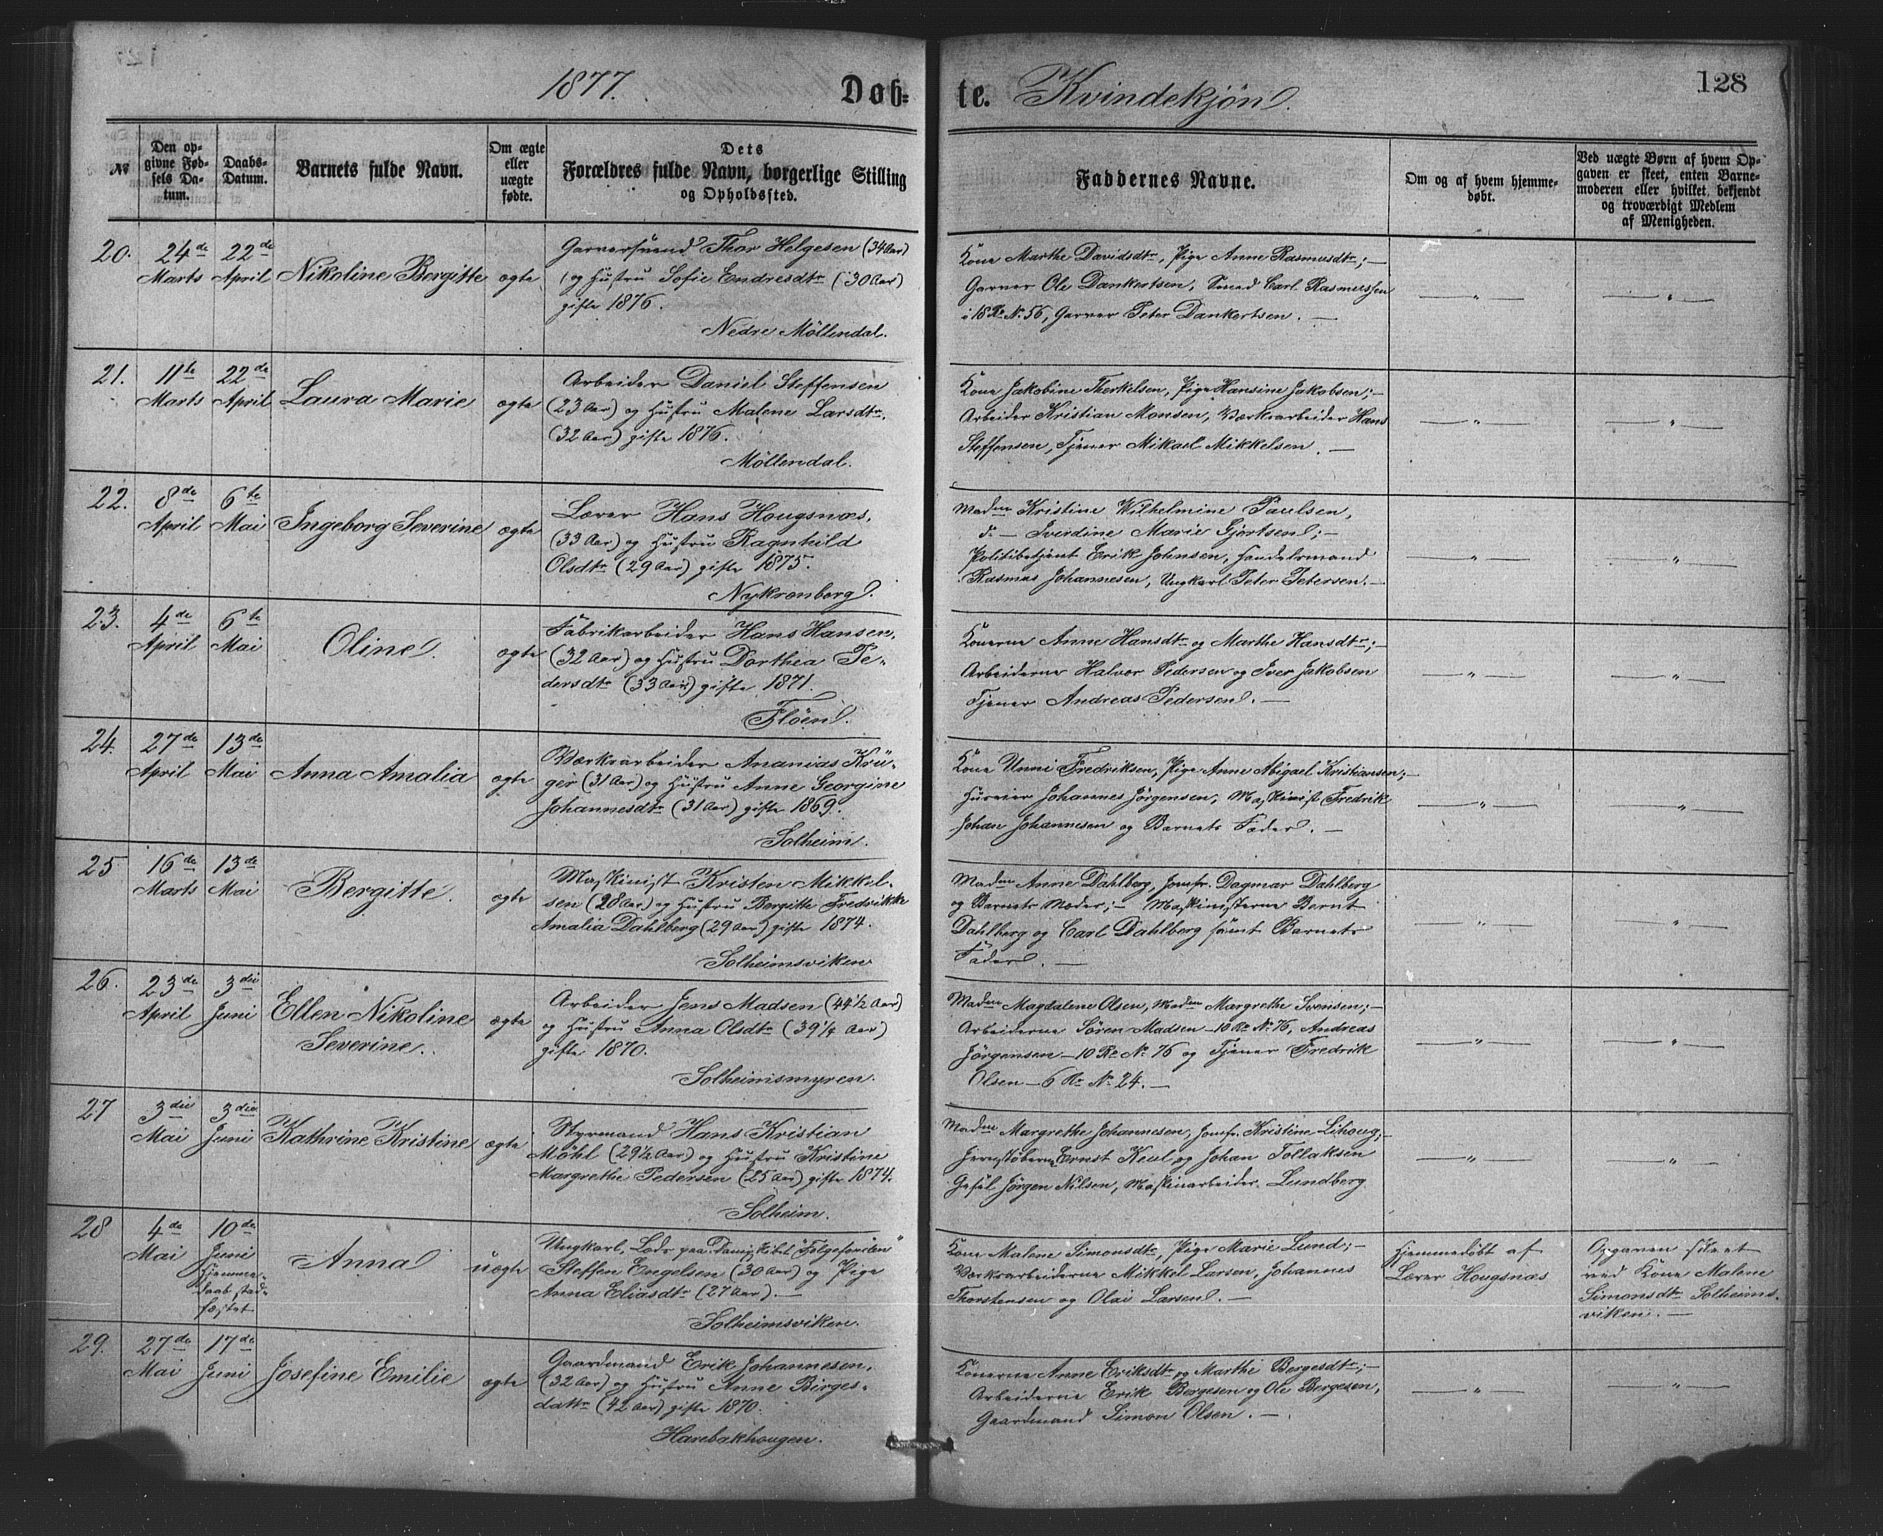 1877. Døb= te. Kvindekjön. 128
№
Den op-
givne Fød-
sels Da-
tum.
Daabs-
Datum.
Barnets fulde Navn.
Om ægte
eller
uægte
fødte.
Dets
Forældres fulde Navn, borgerlige Stilling
og Opholdssted.
Faddernes Navne.
Om og af hvem hjemme-
døbt.
Ved uægte Børn af hvem Op-
gaven er skeet, enten Barne-
moderen eller hvilket, bekjendt
og troværdigt Medlem
af Menigheden.
20.
24de
Marts
22de
April
Nikoline Bergitte
ægte
Garversvend Thor Helgesen (34 Aar)
og Hustru Sofie Endresdtr (30 Aar)
gifte 1876.
Nedre Möllendal.
Kone Marthe Davidsdtr, Pige Anne Rasmusdtr; —
Garver Ole Dankertsen, Smed Carl Rasmussen
i 18 Re № 56, Garver Peter Dankertsen. —
— " —
— " —
21.
11te
Marts
22de
April
Laura Marie
ægte
Arbeider Daniel Steffensen
(23 Aar) og Hustru Malene Larsdtr,
(32 Aar) gifte 1876.
Möllendal.
Kone Jakobine Therkelsen, Pige Hansine Jakobsen; —
Arbeider Kristian Monsen, Værksarbeider Hans
Steffensen, Tjener Mikael Mikkelsen. —
— " —
— " —
22.
8de
April
6te
Mai
Ingeborg Severine
ægte
Lærer Hans Hougsnæs,
(33 Aar) og Hustru Ragnhild
Olsdtr (29 Aar) gifte 1875.
Nykronborg.
Madm Kristine Wilhelmine Paulsen,
d. — Iverdine Marie Gjertsen; —
Politibetjent Erik Johnsen, Handelsmand
Rasmus Johannesen, Ungkarl Peter Petersen. —
— " —
— " —
23.
4de
April
6te
Mai
Oline.
ægte
Fabrikarbeider Hans Hansen,
(32 Aar) og Hustru Dorthea Pe-
dersdtr (33 Aar) gifte 1871.
Flöen.
Konerne Anne Hansdtr og Marthe Hansdtr; —
Arbeiderne Halvor Pedersen og Iver Jakobsen
Tjener Andreas Pedersen. —
— " —
— " —
24.
27de
April
13de
Mai
Anna Amalia
ægte
Værksarbeider Ananias Krü-
ger (31 Aar) og Hustru Anne Georgine
Johannesdtr (31 Aar) gifte 1869.
Solheim.
Kone Unni Fredriksen, Pige Anne Abigael Kristiansen; —
Huseier Johannes Jörgensen, Maskinist Fredrik
Johan Johannesen og Barnets Fader. —
— " —
— " —
25
16de
Marts
13de
Mai
Bergitte.
ægte
Maskinist Kristen Mikkel-
sen (28 Aar) og Hustru Bergitte Fredrikke
Amalia Dahlberg (29 Aar) gifte 1874.
Solheimsviken
Madm Anne Dahlberg, Jomfr. Dagmar Dahlberg
og Barnets Moder; — Maskinisterne Bernt
Dahlberg og Carl Dahlberg samt Barnets
Fader. —
— " —
— " —
26.
23de
April
3die
Juni
Ellen Nikoline
Severine.
ægte
Arbeider Jens Madsen (44 1/2 Aar)
og Hustru Anna Olsdtr (39 1/4 Aar)
gifte 1870.
Solheimsmyren.
Madm Magdalene Olsen, Madm Margrethe Svensen; —
Arbeiderne Sören Madsen — 10 Re № 76, Andreas
Jörgensen — 10 Re № 76 og Tjener Fredrik
Olsen — 6 Re № 24. —
— " —
— " —
27
3die
Mai
3die
Juni
Kathrine Kristine
ægte
Styrmand Hans Kristian
Möhl (29 1/2 Aar) og Hustru Kristine
Margrethe Pedersen (25 Aar) gifte 1874.
Solheim.
Madm Margrethe Johannesen, Jomfr. Kristine Lihoug; —
Jernstöberne Ernst Keul og Johan Tollaksen
Gesel Jörgen Nilsen, Maskinarbeider Lundberg
— " —
— " —
28
4de
Mai
10de
Juni
Hjemme-
daab stad-
fæstet
Anna
uægte
Ungkarl, Lods paa Dampskibet "Folgefonden"
Steffen Engelsen (30 Aar) og Pige
Anna Eliasdtr (27 Aar). —
Solheimsviken.
Kone Malene Simonsdtr, Pige Marie Lund; —
Værksarbeiderne Mikkel Larsen, Johannes
Thorstensen og Olai Larsen. —
Hjemmedöbt af
Lærer Hougsnæs
Opgaven skeet
ved Kone Malene
Simonsdtr Solheims-
viken. —
29.
27de
Mai
17de
Juni
Josefine Emilie
ægte
Gaardmand Erik Johannesen,
(32 Aar) og Hustru Anne Birges-
datter (42 Aar) gifte 1870.
Harebakhougen.
Konerne Anne Eriksdtr og Marthe Bergesdtr; —
Arbeiderne Erik Bergesen og Ole Bergesen,
Gaardmand Simon Olsen. —
— " —
— " —